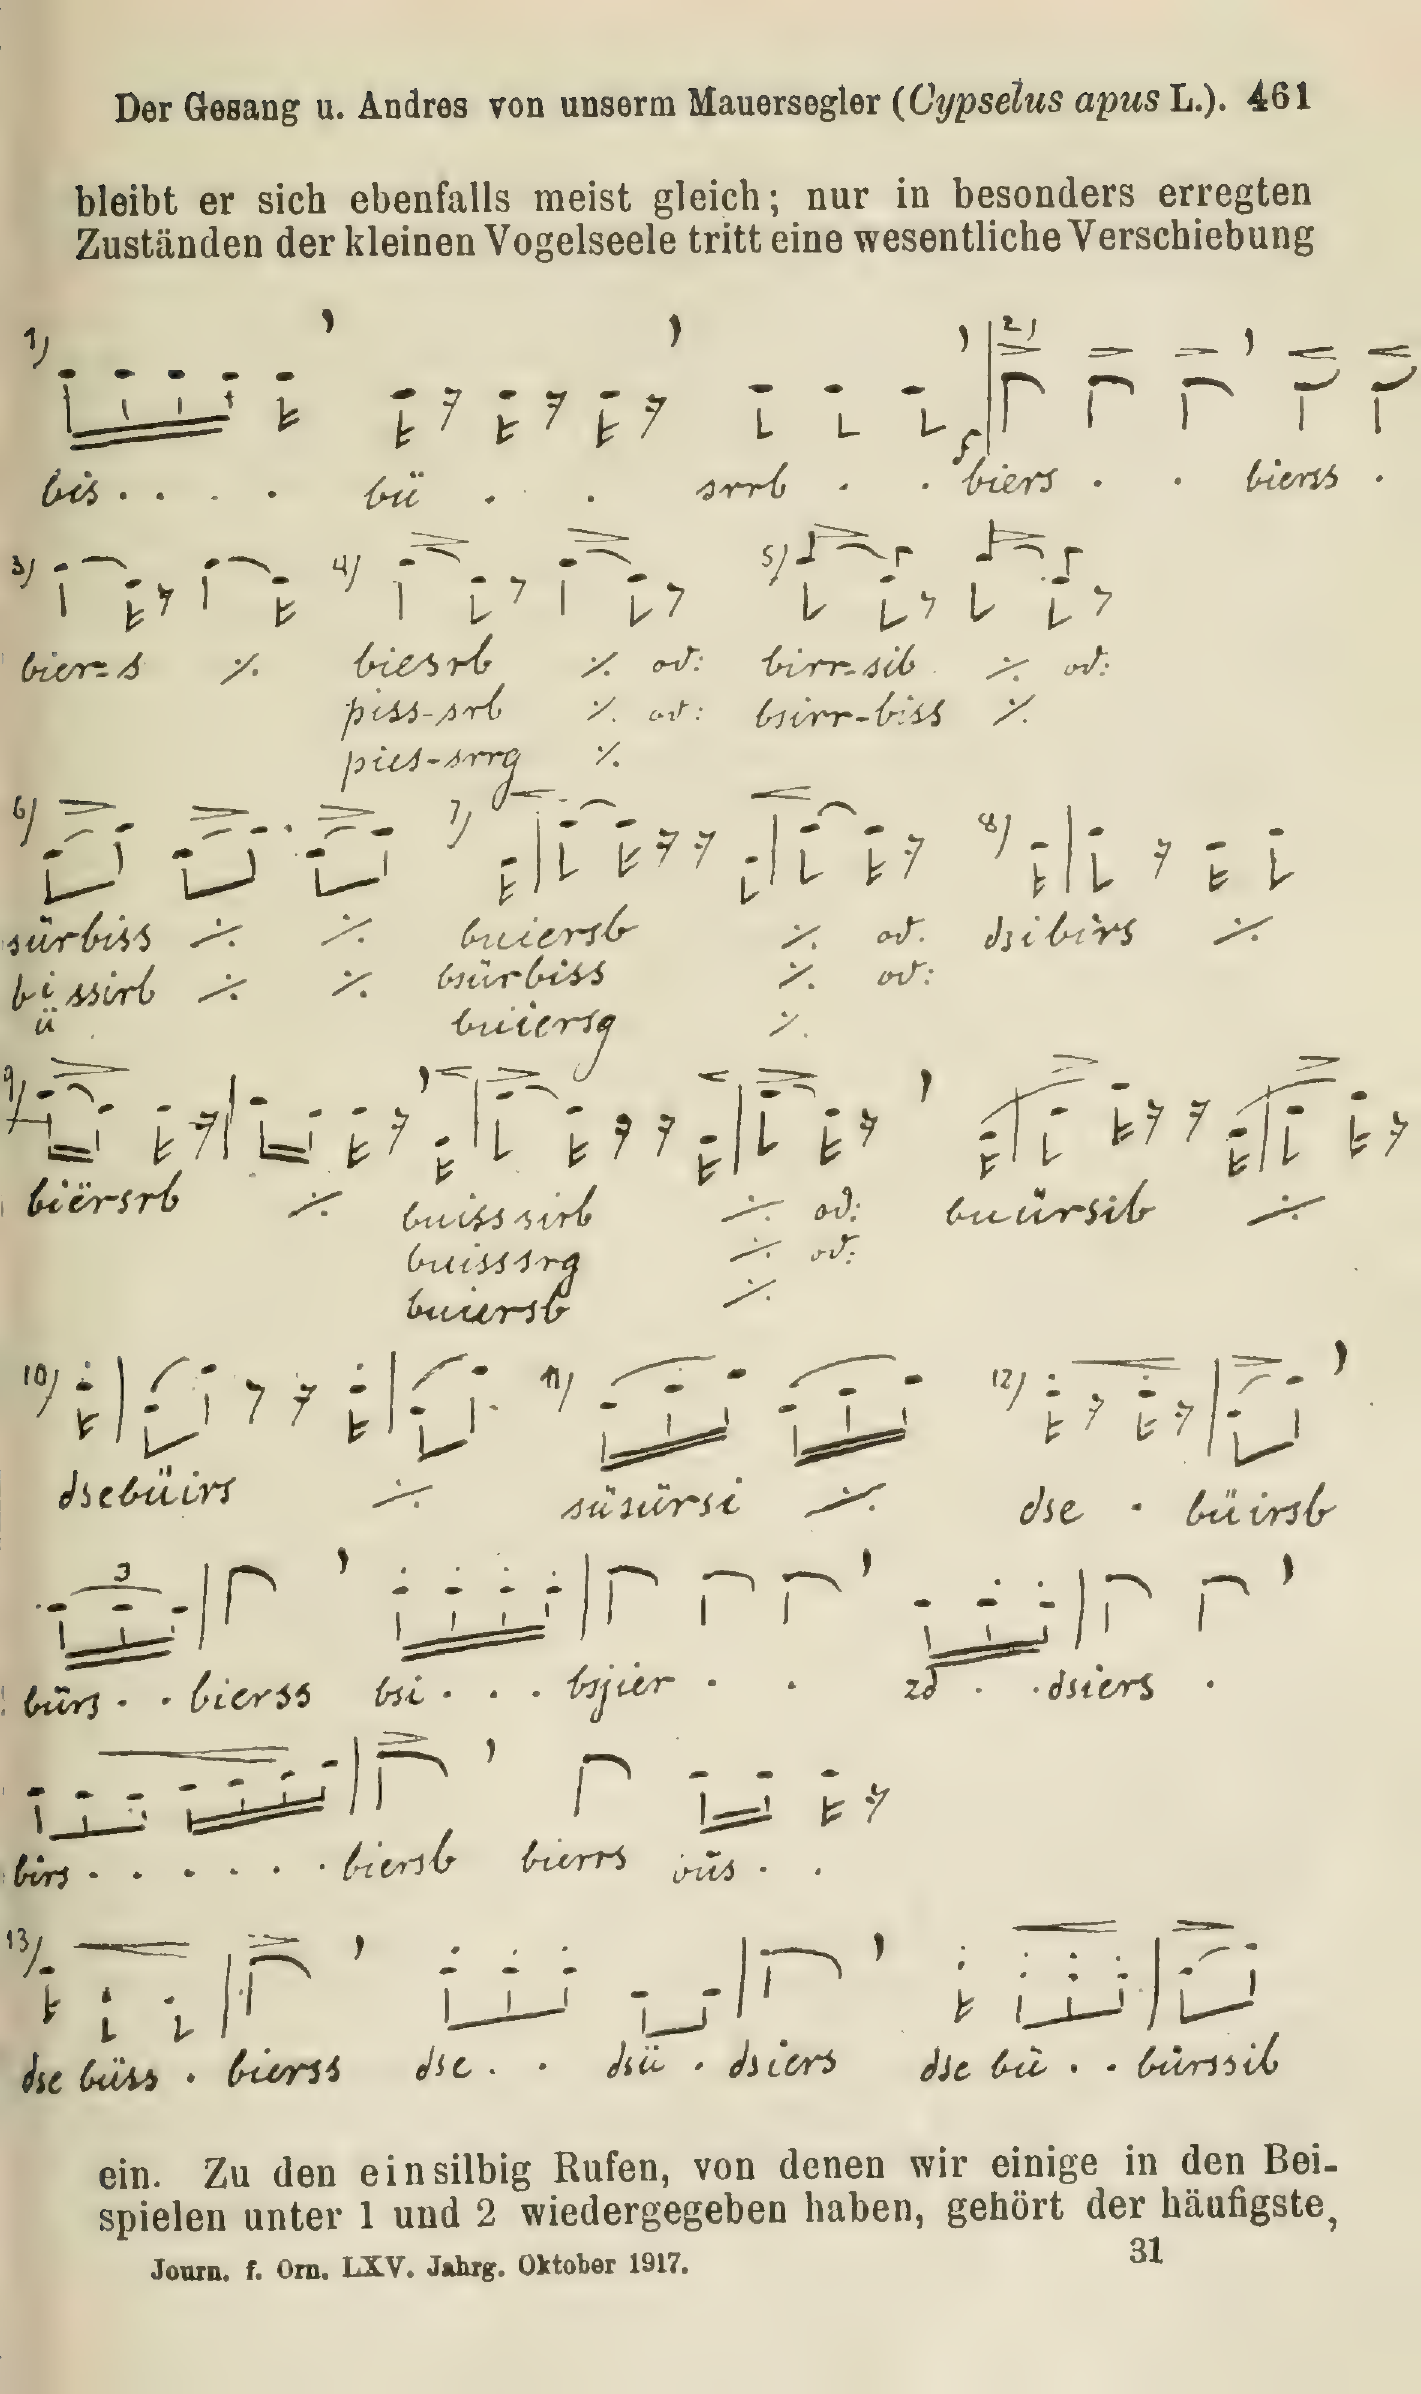 Der Gesang u. Andres von unserm Mauersegler (Cypselus apus L.). 461
bleibt er sich ebenfalls meist gleich; nur in besonders erregten
Zuständen der kleinen Vogelseele tritt eine wesentliche Verschiebung
1) 2)
bis . . . . bü . . srrb . . biers . . bierss .
3) 4) 5)
bier=s ٪ biesrb ٪ od: birr-sib ٪ od:
piss-srb ٪ od: bsirr-biss ٪
pies-srrg ٪
6) 7) 8)
sürbiss ٪ ٪ buiersb ٪ od. dsibirs ٪
bissirb ٪ ٪ bsürbiss ٪ od:
ü buiersg ٪
9)
biërsrb ٪ buisssirb ٪ od: buürsib ٪
buisssrg ٪ od:
buiersb ٪
10) 11) 12)
dsebüirs ٪ süsürsi ٪ dse . büirsb
3
bürs . . bierss bsi . . . bsjier . . zd . . dsiers .
birs . . . . . . biersb bierrs . .
13)
dse büss . bierss dse . . dsü . dsiers dse bü . . bürssib
ein. Zu den einsilbig Rufen, von denen wir einige in den Bei-
spielen unter 1 und 2 wiedergegeben haben, gehört der häufigste,
Journ. f. Orn. LXV. Jahrg. Oktober 1917. 31